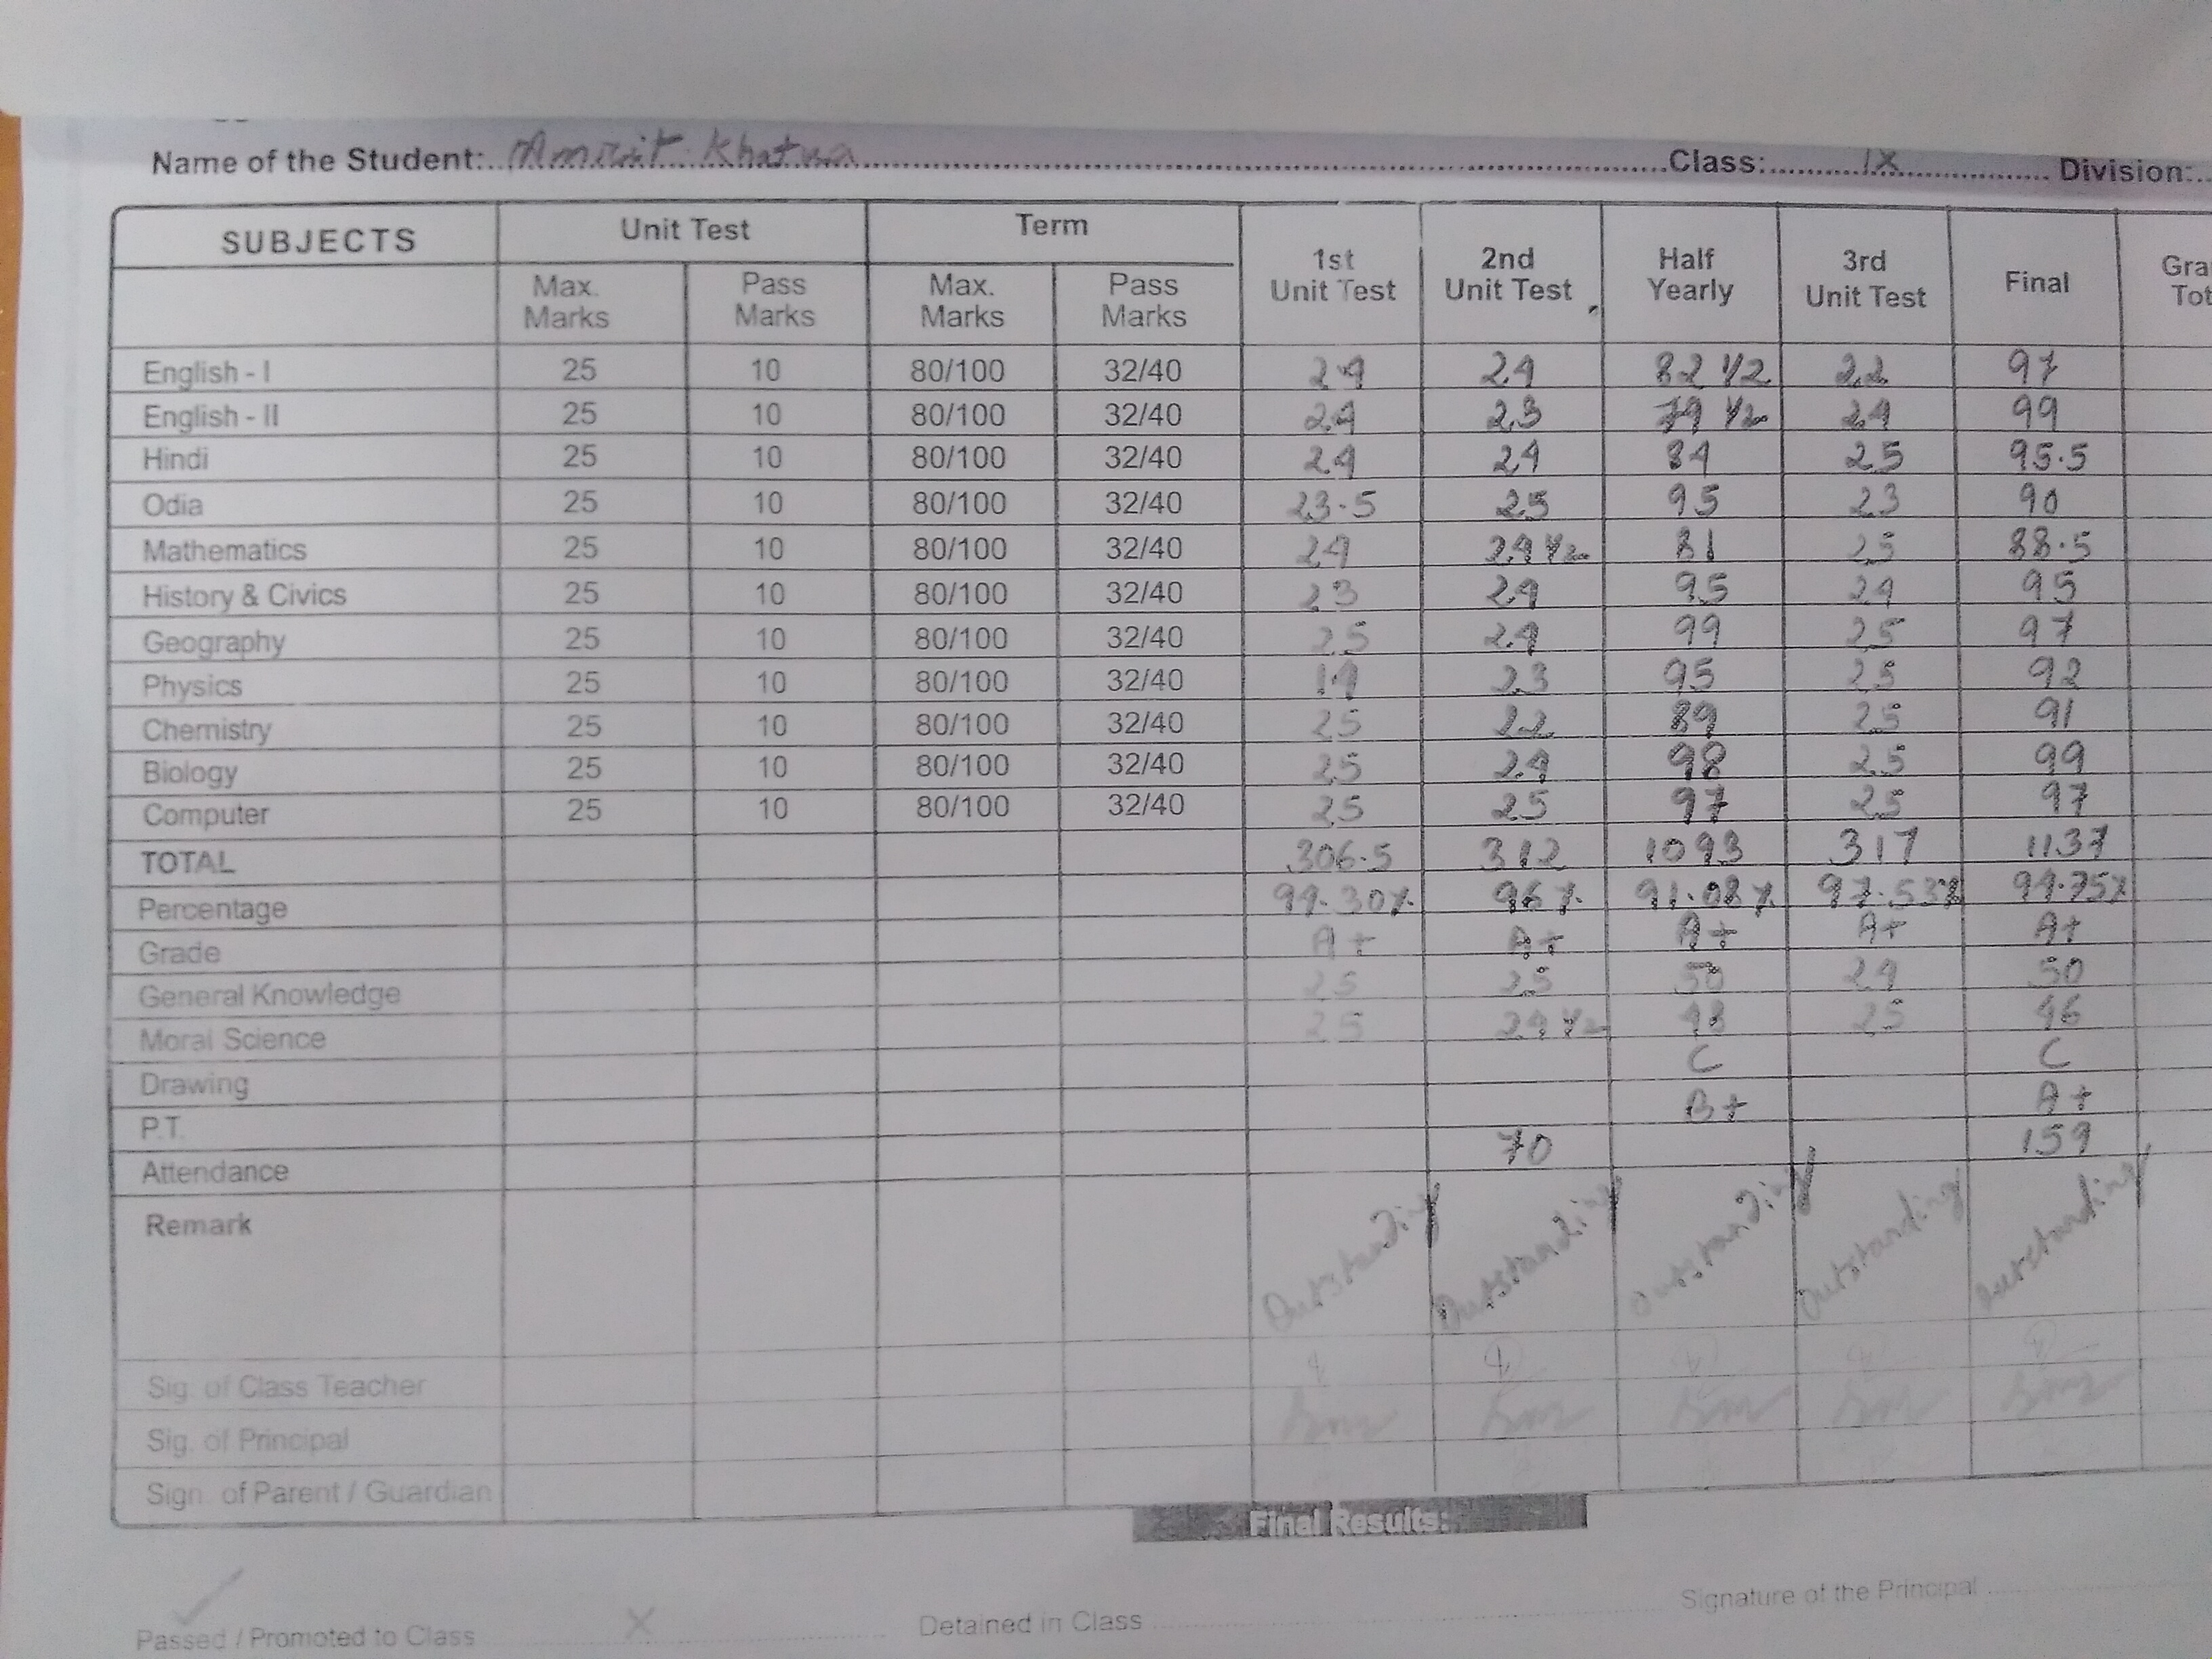 Name of the Student: Amrit Khatua Class: IX Division:
SUBJECTS Unit Test Term 1st Unit Test 2nd Unit Test Half Yearly 3rd Unit Test Final
Max. Marks Pass Marks Max. Marks Pass Marks
English - I 25 10 80/100 32/40 24 24 82 1/2 22 97
English - II 25 10 80/100 32/40 24 23 79 1/2 24 99
Hindi 25 10 80/100 32/40 24 24 84 25 95.5
Odia 25 10 80/100 32/40 23.5 25 95 23 90
Mathematics 25 10 80/100 32/40 24 24 1/2 81 25 88.5
History & Civics 25 10 80/100 32/40 23 24 95 24 95
Geography 25 10 80/100 32/40 25 24 99 25 97
Physics 25 10 80/100 32/40 19 23 95 25 92
Chemistry 25 10 80/100 32/40 25 22 89 25 91
Biology 25 10 80/100 32/40 25 24 98 25 99
Computer 25 10 80/100 32/40 25 25 97 25 97
TOTAL 306.5 312 1093 317 1137
Percentage 94.30% 96% 91.08% 97.53% 94.75%
Grade A+ A+ A+ A+ A+
General Knowledge 25 25 50 24 50
Moral Science 25 24 1/2 48 25 46
Drawing C C
P.T. B+ A+
Attendance 70 159
Remark Outstanding Outstanding Outstanding Outstanding Outstanding
Sig. of Class Teacher
Sig. of Principal
Sign. of Parent / Guardian
Final Results:
Passed / Promoted to Class X Detained in Class Signature of the Principal